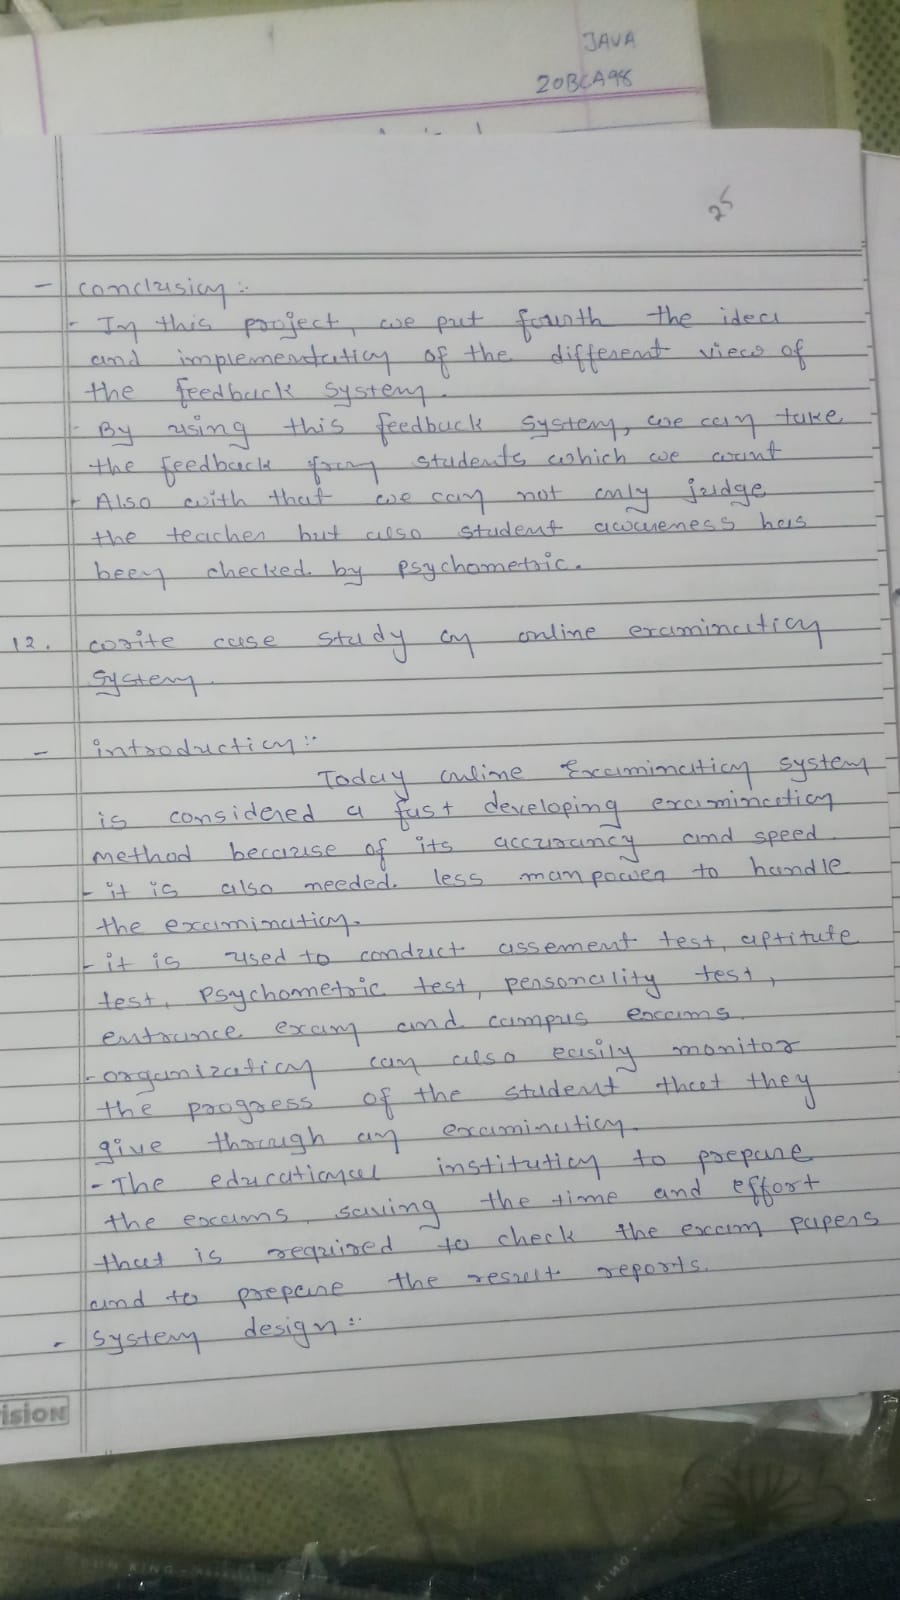 JAVA
20BCA98
25
- Conclusion :-
- In this project, we put fourth the idea
and implementation of the different view of
the feedback system.
- By using this feedback system, we can take
the feedback from students which we want
- Also with that we can not only judge
the teacher but also student awareness has
been checked by psychometric.
12. write case study on online examination
system.
- introduction :-
Today online Examination system
is considered a fast developing examination
method because of its accurancy and speed.
- it is also needed less man power to handle
the examination.
- it is used to conduct assement test, aptitute
test, psychometric test, personality test,
entrance exam and campus exams.
- organization can also easily monitor
the progress of the student that they
give through an examination.
- The educational institution to prepare
the exams, saving the time and effort
that is required to check the exam papers
and to prepare the result reports.
- System design :-
ision